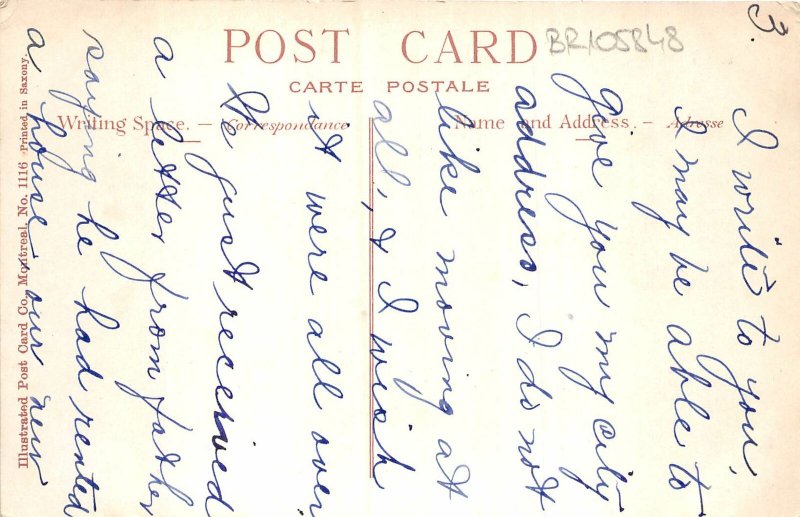 POST CARD
CARTE POSTALE
BR105848
Writing Space. — Correspondance
Name and Address. — Adresse
Illustrated Post Card Co., Montreal, No. 1116 Printed in Saxony.
3.
I write to you,
I may be able to
give you my city
address, I do not
like moving at
all, & I wish
it were all over
We just received
a letter from father
saying he had rented
a house. our new